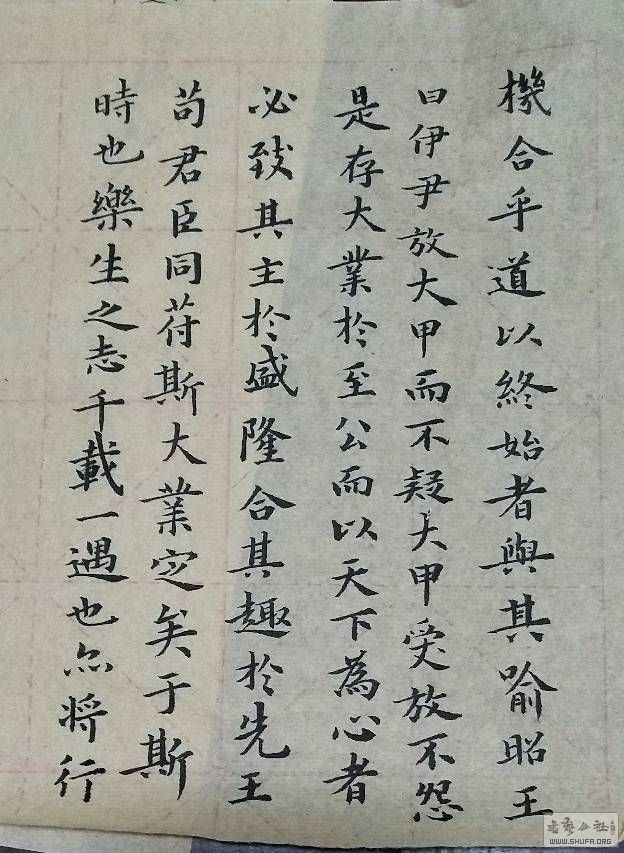 機合乎道以終始者與其喻昭王
曰伊尹放大甲而不疑大甲受放不怨
是存大業於至公而以天下為心者
必致其主於盛隆合其趣於先王
苟君臣同苻斯大業定矣于斯
時也樂生之志千載一遇也亦將行
WWW.SHUFA.ORG